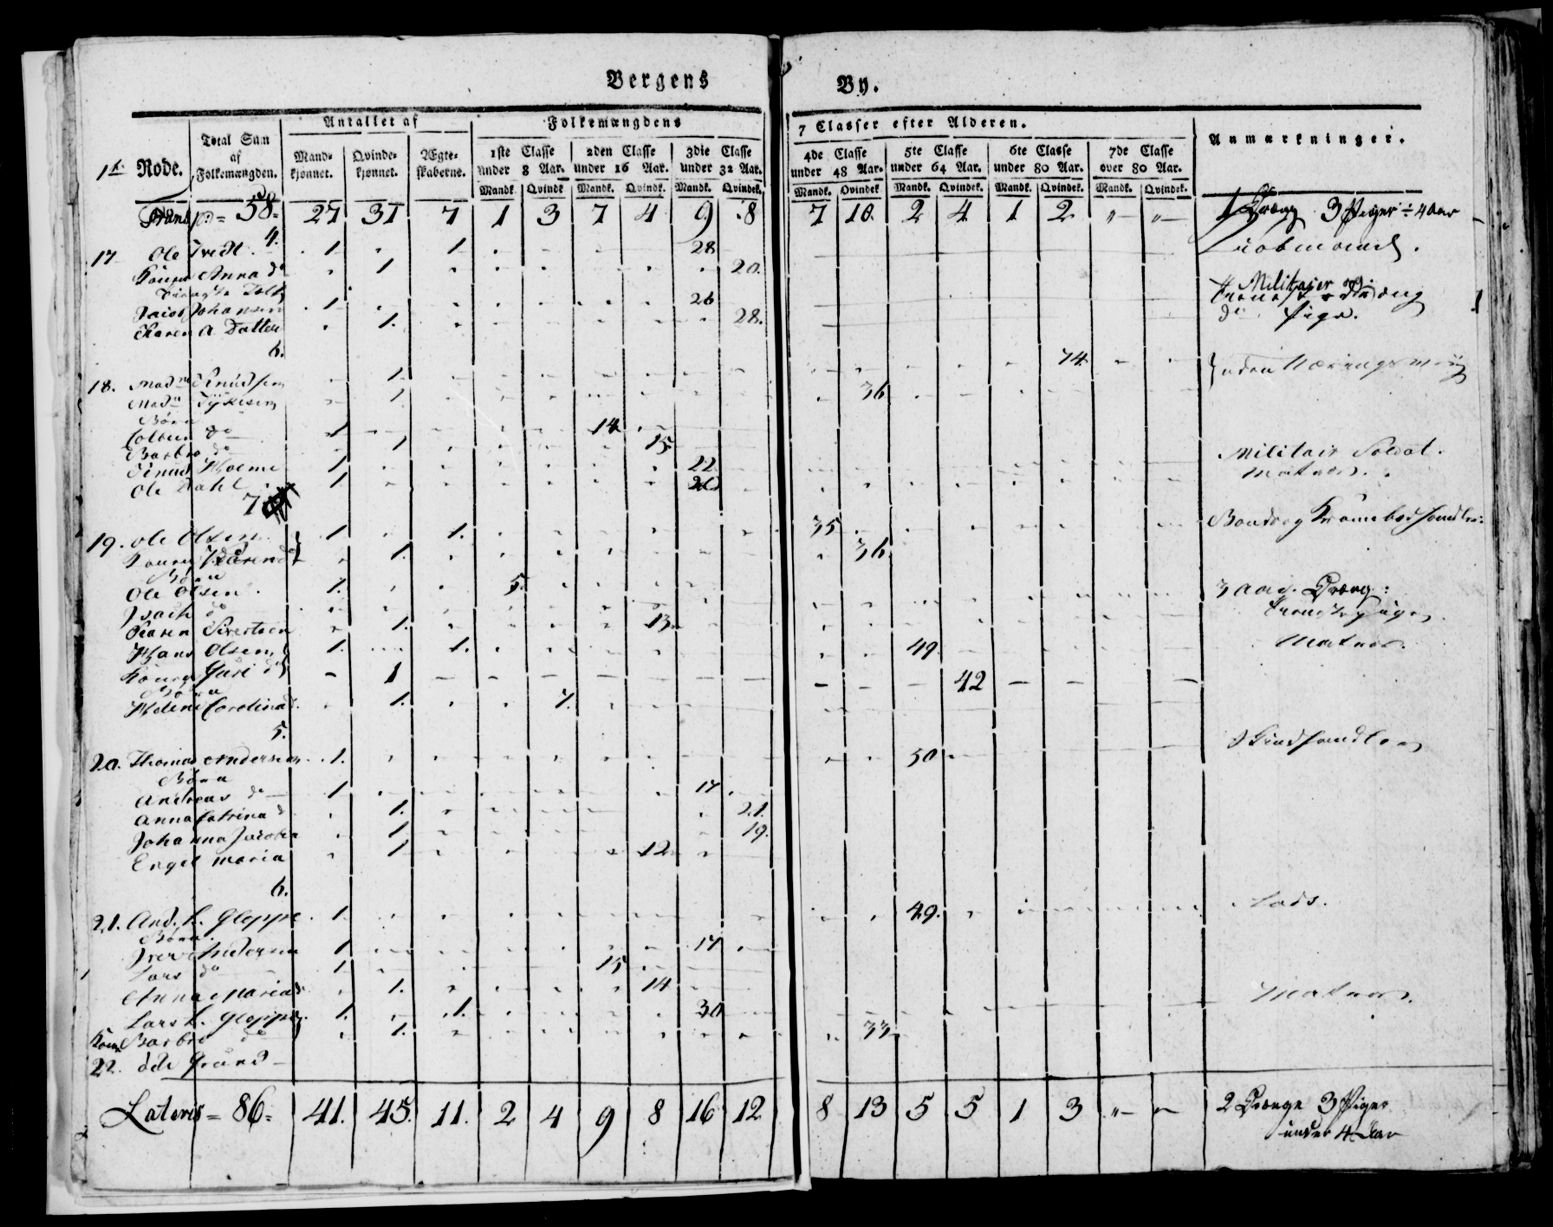 Bergens By.
1ste Rode.
Total Sum af Folkemængden.
Antallet af
Mandkjønnet. Qvindekjønnet. Ægteskaberne.
Folkemængdens 7 Classer efter Alderen.
1ste Classe under 8 Aar. 2den Classe under 16 Aar. 3die Classe under 32 Aar. 4de Classe under 48 Aar. 5te Classe under 64 Aar. 6te Classe under 80 Aar. 7de Classe over 80 Aar.
Mandk. Qvindk. Mandk. Qvindk. Mandk. Qvindek. Mandk. Qvindek Mandk. Qvindek. Mandk. Qvindek. Mandk. Qvindek.
Anmærkninger.
58. 27 31 7 1 3 7 4 9 8 7 10 2 4 1 2 " " 1 Dreng 3 Piger ÷ 4 Aar
4.
17 Ole Tvedt. 1 1 28
Anna do 1 20.
Johansen 1 26 Militair og
Karen A Datter 1. 28. do Pige.
6.
18. Madme Knudsen 1. 74
Madm 1 36
Børn
do 1 14
Barbro do 1 15
Knud Holme 1 22 Militair Soldat.
Ole Dahl 1 26 Matros.
7
19. Ole Olsen. 1. 1. 35
Kone 1. 36
Børn
Ole Olsen. 1. 5.
do 3 Aar. Dreng:
Sivertsen 1. 13
Hans Olsen 1. 1. 49 Matros.
Kone do 1 42
Børn
Helene Carolina do 1. 7.
5.
20. Thomas Andersen 1. 50
Børn
Andreas do 1 17
Anna Catrina do 1. 21.
Johanna 1 19.
Engel Maria 1 12
6.
21. And. L. Gloppe 1. 49. Lods.
Børn
Andersen 1 17
Lars do 1. 15
Anna Maria do 1. 14
Lars L. Gloppe 1. 1. 30 Matros.
Kone Barbro do 1. 33
22. øde Grund
Lateris = 86 = 41. 45. 11. 2 4 9 8 16 12 8 13 5 5 1 3 " " 2 Drenge 3 Piger
under 4 Aar